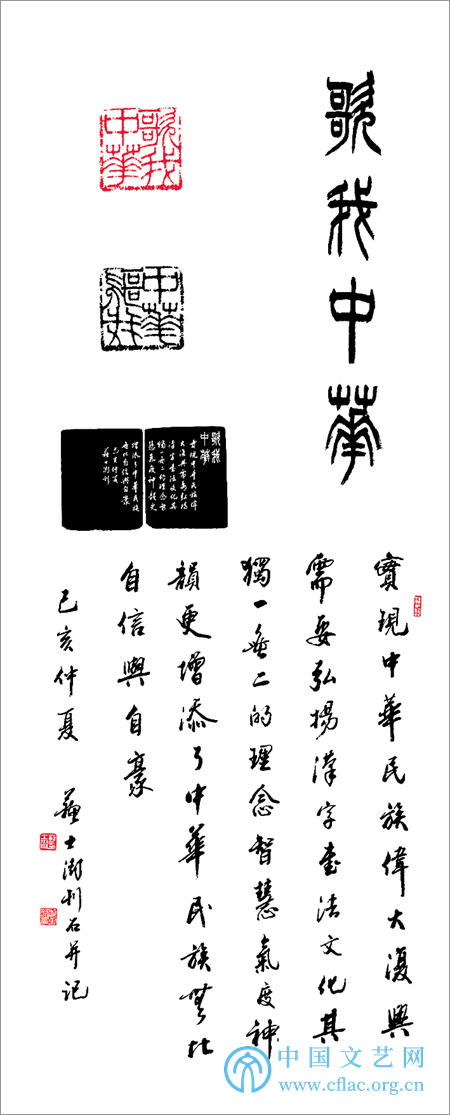 歌我中華
歌我
中華
實現中華民族偉大復興
需要弘揚漢字書法文化其
獨一無二的理念智慧氣度神
韻更增添了中華民族無比
自信與自豪
己亥仲夏 蘇士澍刊石并記
中国文艺网
www.cflac.org.cn